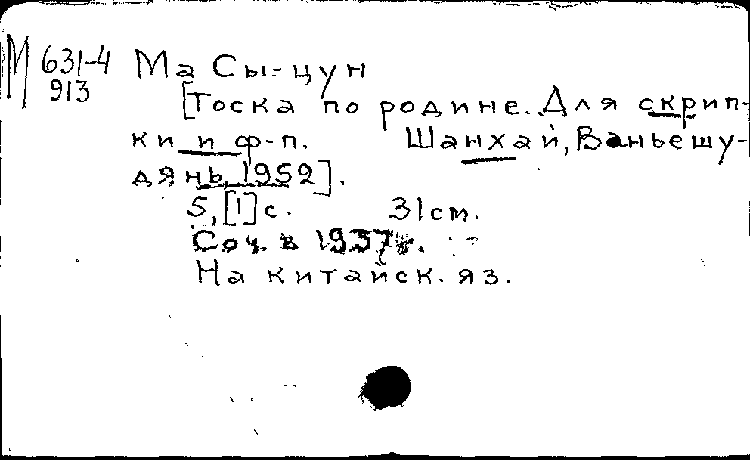 М 631-4
913
Ма Сы-цун
[Тоска по родине. Для скрип-
ки и ф-п. Шанхай, Ваньешу-
дянь, 1952].
5, [1] с. 31 см.
Соч. в 1937 г.
На китайск. яз.